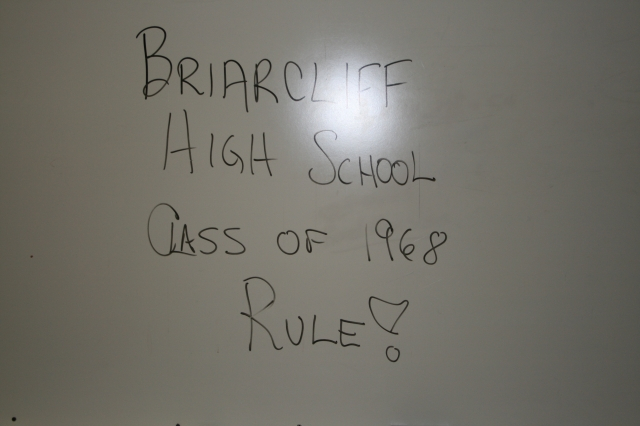 BRIARCLIFF
HIGH SCHOOL
CLASS OF 1968
RULE!